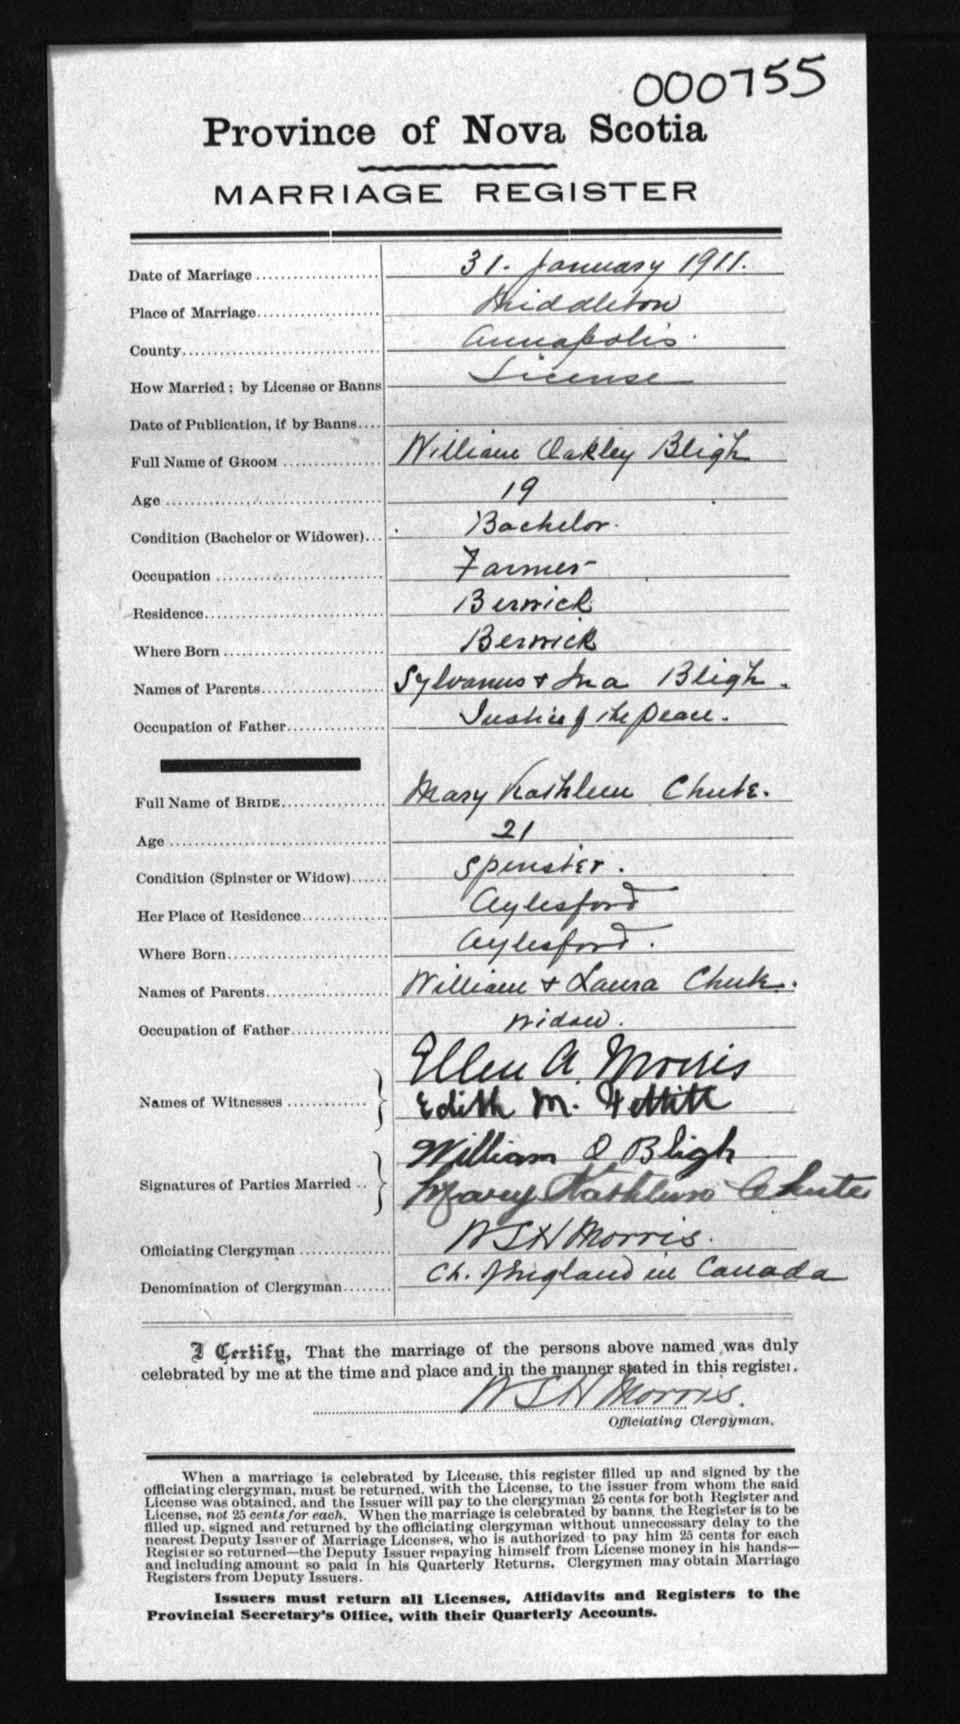 000755
Province of Nova Scotia
MARRIAGE REGISTER
Date of Marriage 31. January 1911.
Place of Marriage Middleton
County Annapolis.
How Married; by License or Banns License
Date of Publication, if by Banns
Full Name of GROOM William Oakley Bligh
Age 19
Condition (Bachelor or Widower) Bachelor.
Occupation Farmer
Residence Berwick
Where Born Berwick
Names of Parents Sylvanus + Ina Bligh.
Occupation of Father Justice of the Peace.
Full Name of BRIDE Mary Kathleen Chute.
Age 21
Condition (Spinster or Widow) Spinster.
Her Place of Residence Aylesford
Where Born Aylesford.
Names of Parents William + Laura Chute.
Occupation of Father Widow.
Ellen A. Morris
Names of Witnesses Edith M.
William O Bligh
Signatures of Parties Married Mary Kathleen Chute
Officiating Clergyman W S H Morris.
Denomination of Clergyman Ch. of England in Canada
I Certify, That the marriage of the persons above named was duly
celebrated by me at the time and place and in the manner stated in this register.
W S H Morris.
Officiating Clergyman.
When a marriage is celebrated by License, this register filled up and signed by the
officiating clergyman, must be returned, with the License, to the issuer from whom the said
License was obtained, and the Issuer will pay to the clergyman 25 cents for both Register and
License, not 25 cents for each. When the marriage is celebrated by banns, the Register is to be
filled up, signed and returned by the officiating clergyman without unnecessary delay to the
nearest Deputy Issuer of Marriage Licenses, who is authorized to pay him 25 cents for each
Register so returned—the Deputy Issuer repaying himself from License money in his hands—
and including amount so paid in his Quarterly Returns. Clergymen may obtain Marriage
Registers from Deputy Issuers.
Issuers must return all Licenses, Affidavits and Registers to the
Provincial Secretary's Office, with their Quarterly Accounts.